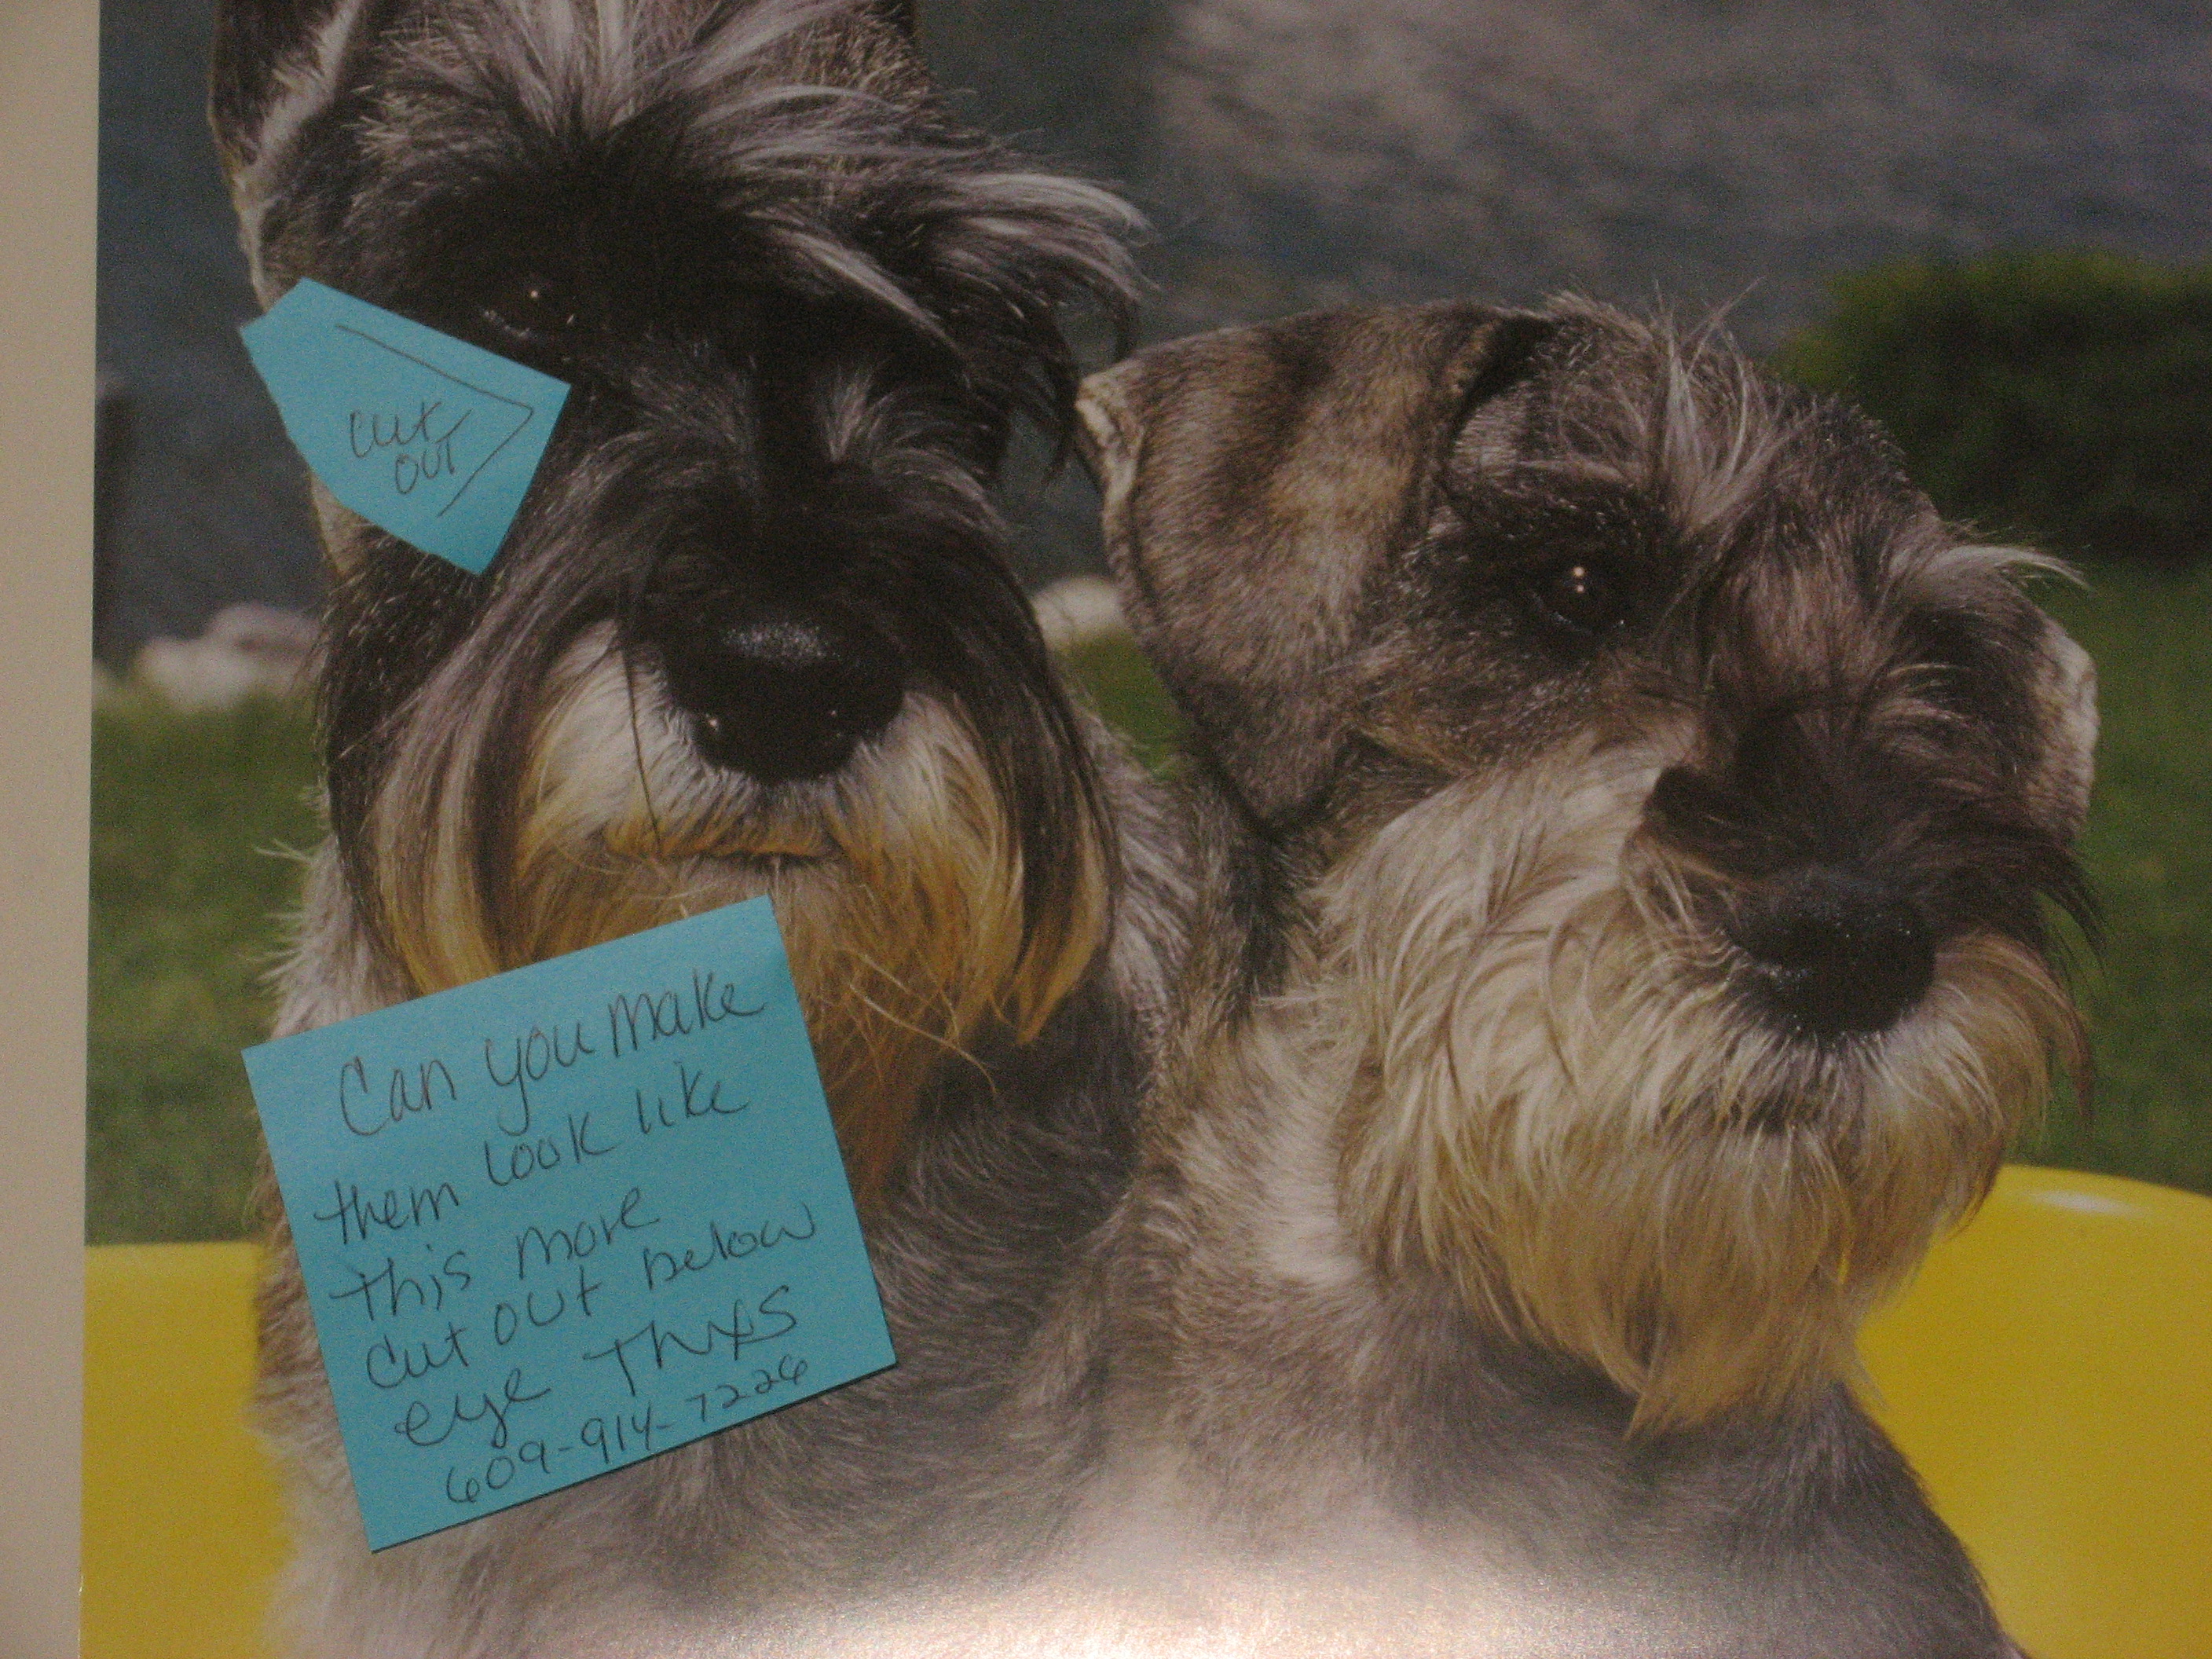 cut
out
Can you make
them look like
this more
cut out below
eye Thxs
609-914-7226